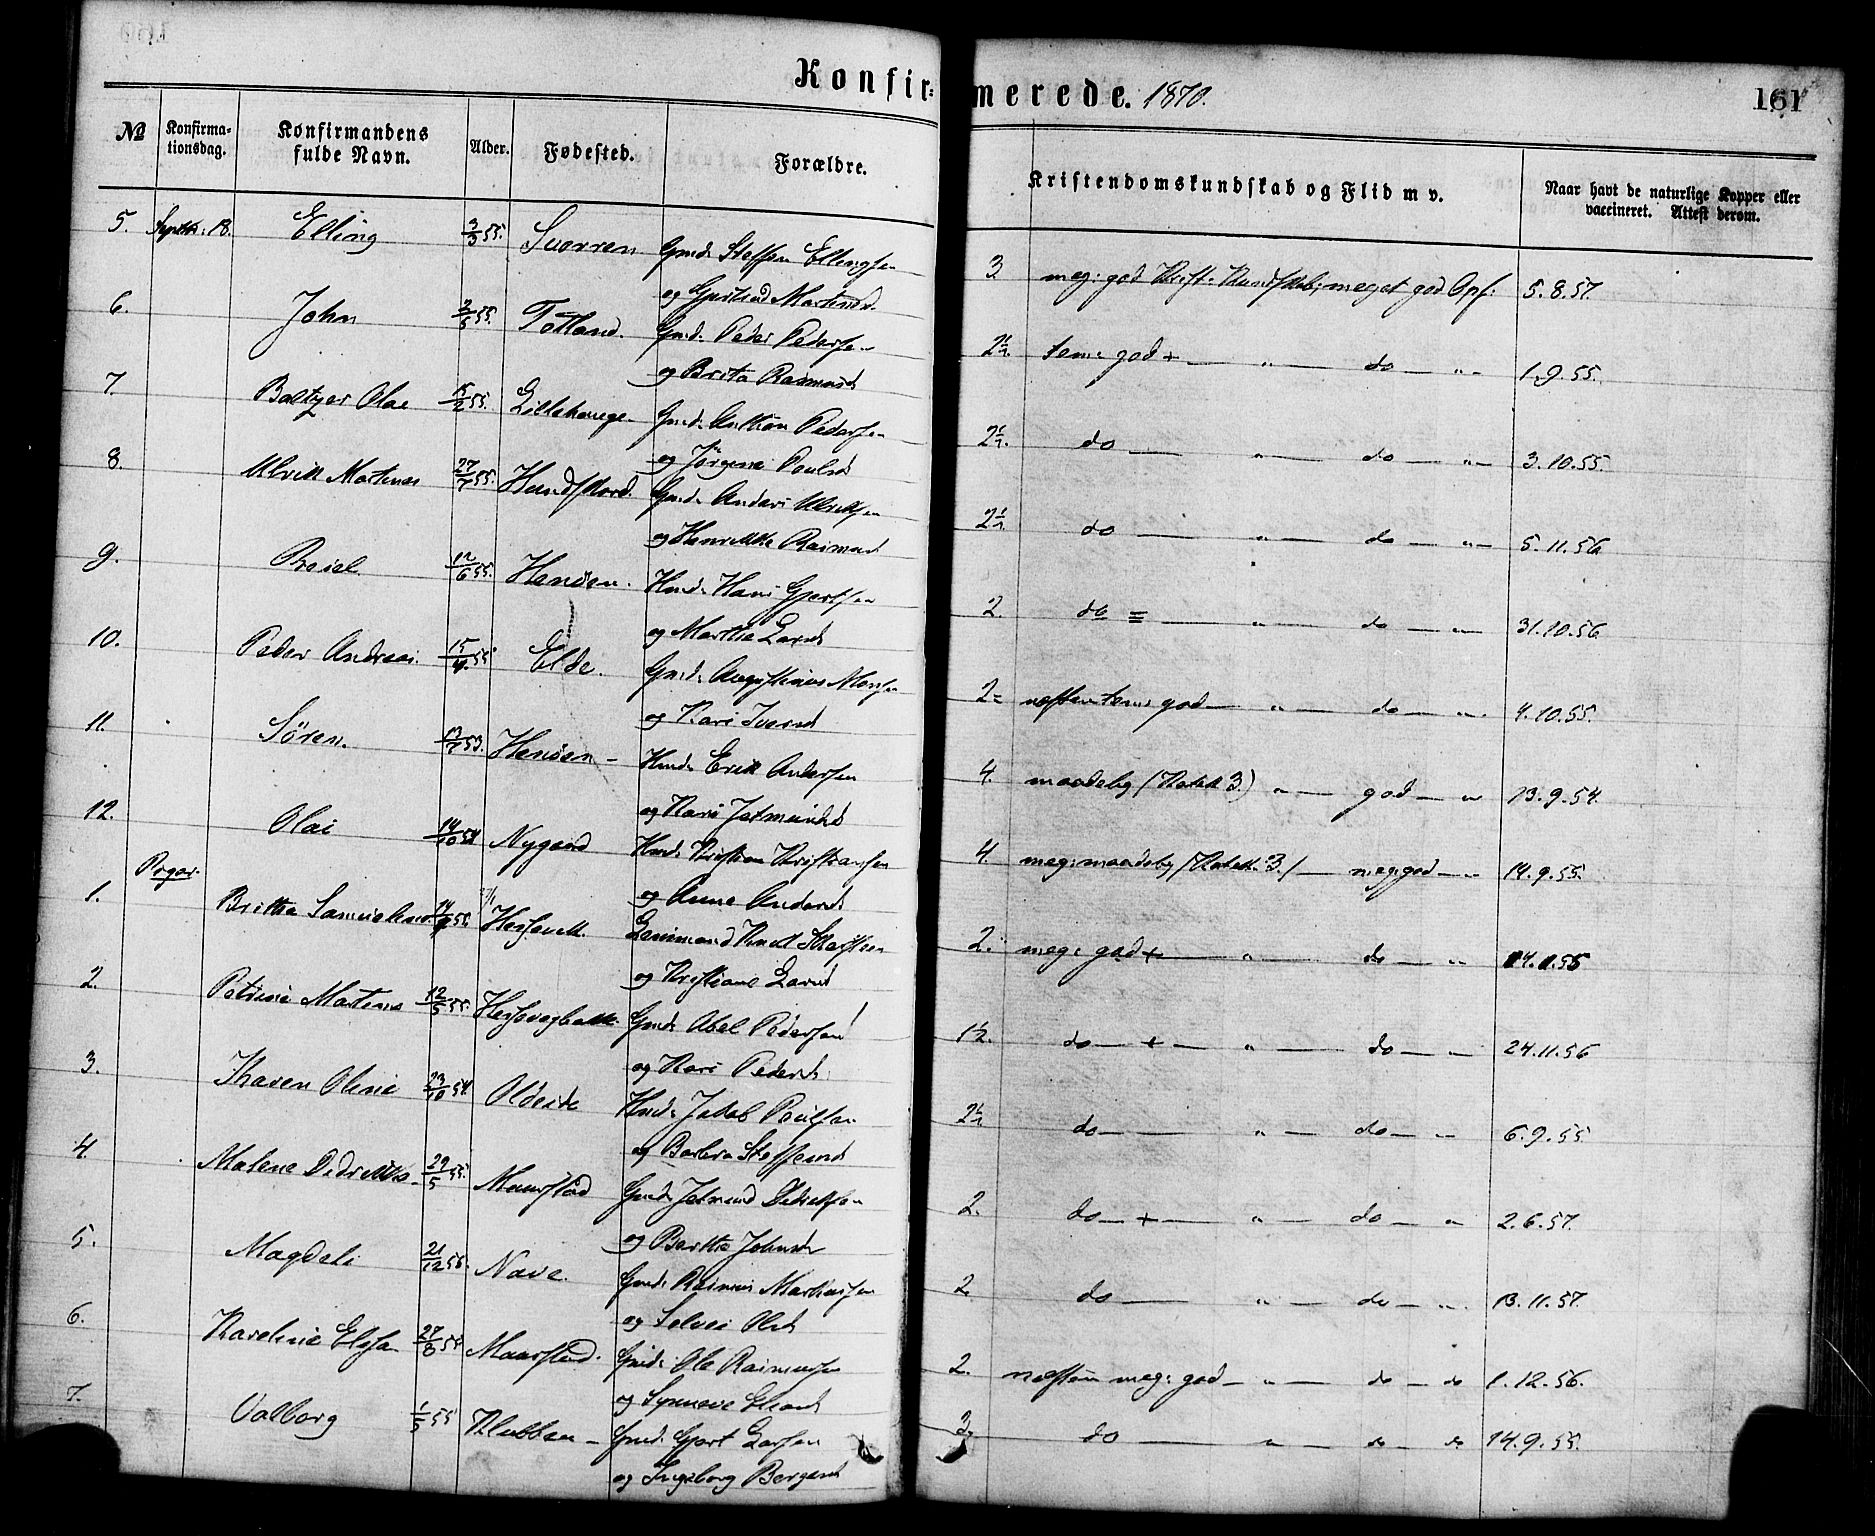 Konfirmerede. 1870. 161
№ Konfirmationsdag. Konfirmandens fulde Navn. Alder. Fødested. Forældre. Kristendomskundskab og Flid m v. Naar havt de naturlige Kopper eller vaccineret. Attest derom.
5. Septbr. 18. Elling 3/3 55. Sverren Gmd. Steffen Ellingsen 3 meg: god Krist. Kundskab; meget god Opf: 5.8.57.
og Gjertrud Martinsd.
6. John 2/6 55. Totland. Gmd. Peder Pedersen 2½ tem: god + — " — do — " — 1.9.55.
og Brita Rasmusd
7. Baltzer Olai 15/2 55. Lillehauge Gmd. Anthon Pedersen 2½. do — " — do — " — 3.10.55.
og Jörgine Paulsd
8. Ulrik Martinus 27/7 55. Hundskord. Gmd. Anders Ulriksen 2½ do — " — do — " — 5.11.56
og Henrikke Rasmusd
9. Roiel 12/6 55. Henden. Hmd. Hans Gjertsen 2. do = — " — do — " — 31.10.56
og Marthe Larsd
10. Peder Andreas. 15/4 55 Elde. Gmd. Augustinus Monsen 2- næsten tem: god — " — do — " — 4.10.55.
og Kari Iversd
11. Søren. 13/7 53. Henden — Hmd. Erik Andersen 4. maadelig (Katek 3.) " — god — " 13.9.54.
og Kari Jetmundsd
12. Olai 14/10 54 Nygaard Hmd. Kristian Kristiansen 4. meg: maadelig (Katek. 3.) — meg: god — " 14.9.55.
og Anne Andersd
Piger.
1. Britha 14/9 55. Hessevik. Leiemand Knut 2. meg: god + — " — do — " 14.11.55
og Kristiane Larsd
2. Petrine Martina 12/5 55. Hessevagbakk. Gmd. Abel Pedersen 1½. do — + — " — do — " 24.11.56
og Kari Pedersd.
3. Karen Oline 23/10 54. Oldeide Hmd. Jakob Poulsen 2½ do — " — do — " 6.9.55
og Barbra Steffensd
4. Malene Didrikke 29/5 55. Maurstad Gmd. Jetmund Didriksen 2. do — + — " — do — " 2.6.57.
og Berthe Johnsd
5. Magdeli 21/12 55. Nave. Gmd. Rasmus Mathiassen 2. do — " — do — " 13.11.57.
og Selvei Olsd
6. Karoline Elisa 27/8 55 Maurstad. Gmd. Ole Rasmussen 2. næsten meg: god — " — do — do 1.12.56.
og Synneve
7. Valborg 1/5 55 Klubben — Gmd. Gjert Larsen 3. do — " — do — do 14.9.55.
og Ingeborg Bergesd